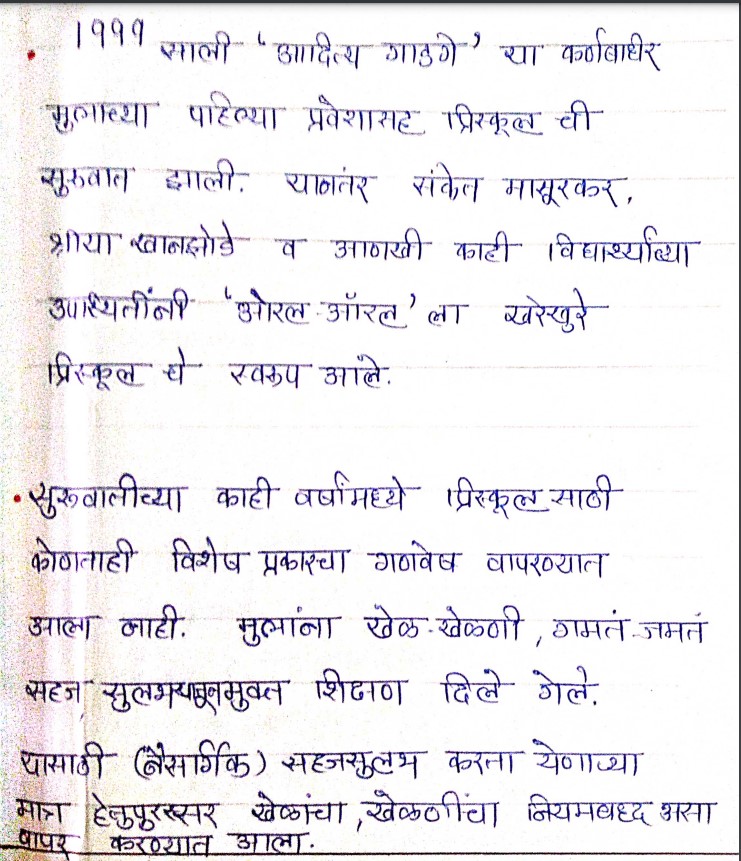 • 1999 साली 'आदित्य गाडगे' या कर्णबधीर
मुलाच्या पहिल्या प्रवेशासह प्रिस्कूल ची
सुरुवात झाली. यानंतर संकेत मासूरकर,
श्रीया खानझोडे व आणखी काही विद्यार्थ्यांच्या
उपस्थितींनी 'ओरल-ऑरल' ला खरेखुरे
प्रिस्कूल चे स्वरूप आले.
• सुरूवातीच्या काही वर्षांमध्ये प्रिस्कूल साठी
कोणताही विशेष प्रकारचा गणवेष वापरण्यात
आला नाही. मुलांना खेळ-खेळणी, गमतं-जमतं
सहज मुक्त शिक्षण दिले गेले.
यासाठी (नैसर्गिक) सहजसुलभ करता येणाऱ्या
मात्र हेतुपुरस्सर खेळांचा, खेळणींचा नियमबध्द असा
वापर करण्यात आला.